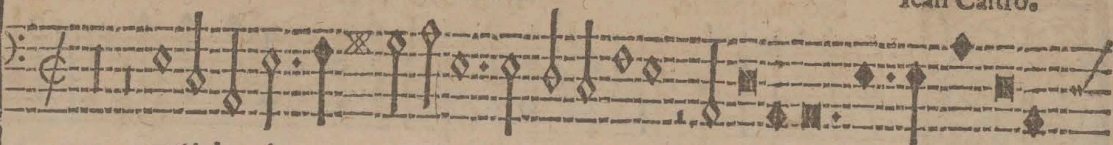 Ican Castro.